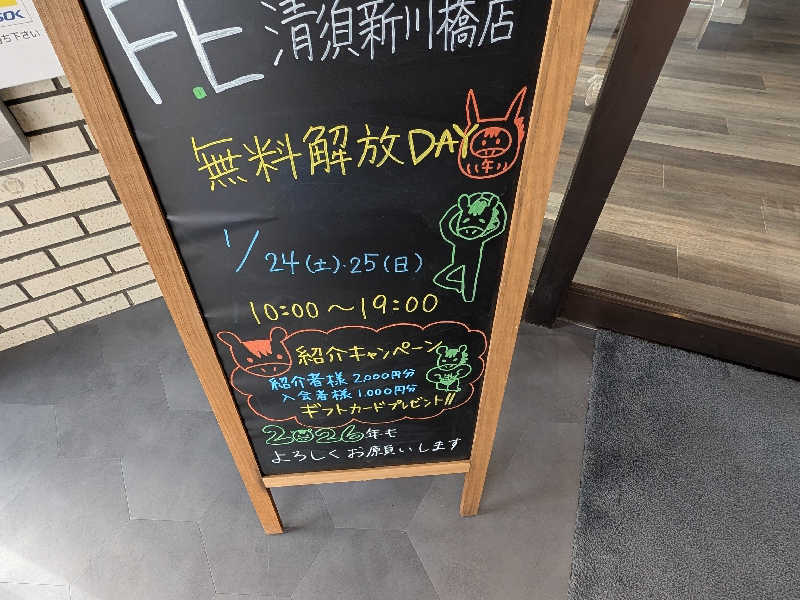 SOK
ち下さい
F.E 清須新川橋店
無料解放DAY
年
1/24(土)・25(日)
10:00〜19:00
紹介キャンペーン
紹介者様 2,000円分
入会者様 1,000円分
ギフトカードプレゼント!!
2026年も
よろしくお願いします